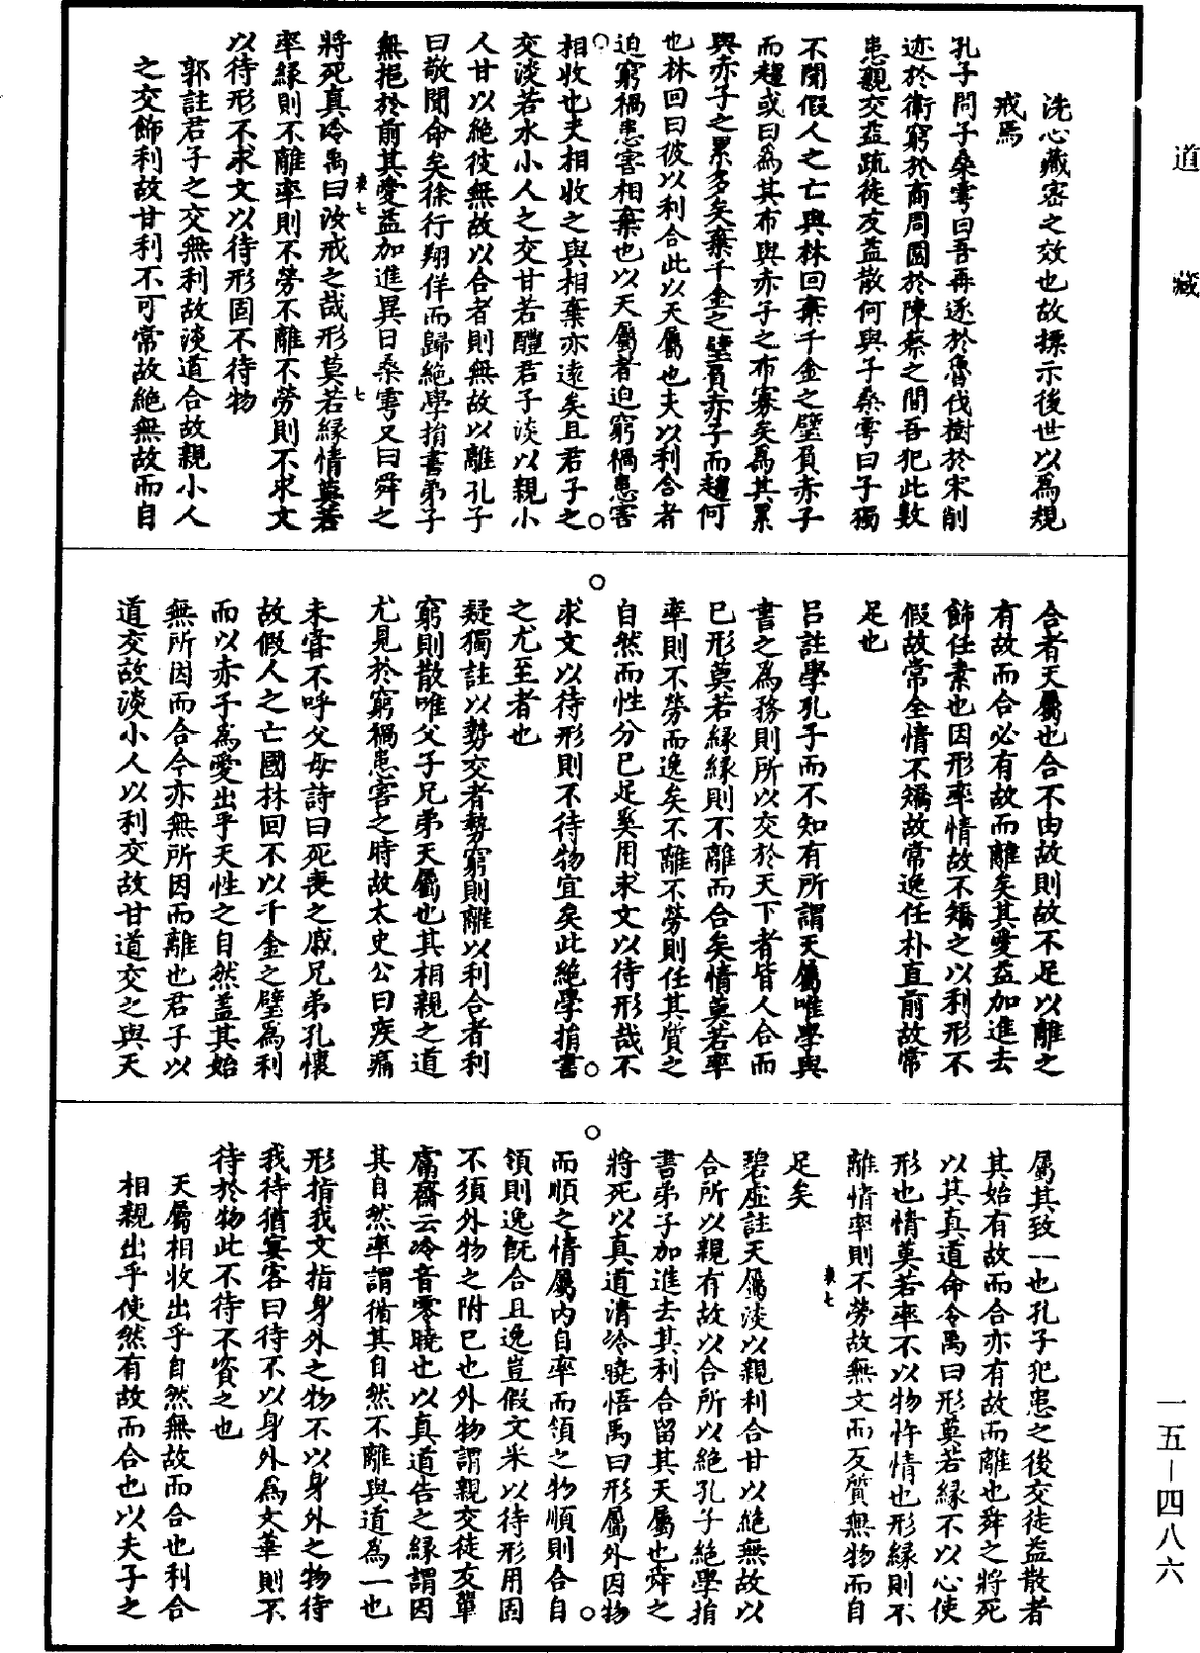 道藏
洗心藏密之效也故摽示後世以為規
戒焉
孔子問子桑雩曰吾再逐於魯伐樹於宋削
迹於衛窮於商周圍於陳蔡之間吾犯此數
患親交益疏徒友益散何與子桑雩曰子獨
不聞假人之亡與林回棄千金之璧負赤子
而趨或曰為其布與赤子之布寡矣為其累
與赤子之累多矣棄千金之璧負赤子而趨何
也林回曰彼以利合此以天屬也夫以利合者
迫窮禍患害相棄也以天屬者迫窮禍患害
相收也夫相收之與相棄亦遠矣且君子之
交淡若水小人之交甘若醴君子淡以親小
人甘以絕彼無故以合者則無故以離孔子
曰敬聞命矣徐行翔佯而歸絕學捐書弟子
無挹於前其愛益加進異日桑雩又曰舜之
將死真泠禹曰汝戒之哉形莫若緣情莫若
率緣則不離率則不勞不離不勞則不求文
以待形不求文以待形固不待物
郭註君子之交無利故淡道合故親小人
之交飾利故甘利不可常故絕無故而自
合者天屬也合不由故則故不足以離之
有故而合必有故而離矣其愛益加進去
飾任素也因形率情故不矯之以利形不
假故常全情不矯故常逸任朴直前故常
足也
呂註學孔子而不知有所謂天屬唯學與
書之為務則所以交於天下者皆人合而
已形莫若緣緣則不離而合矣情莫若率
率則不勞而逸矣不離不勞則任其質之
自然而性分已足奚用求文以待形哉不
求文以待形則不待物宜矣此絕學捐書
之尤至者也
疑獨註以勢交者勢窮則離以利合者利
窮則散唯父子兄弟天屬也其相親之道
尤見於窮禍患害之時故太史公曰疾痛
未嘗不呼父母詩曰死喪之戚兄弟孔懷
故假人之亡國林回不以千金之璧為利
而以赤子為愛出乎天性之自然蓋其始
無所因而合今亦無所因而離也君子以
道交故淡小人以利交故甘道交之與天
屬其致一也孔子犯患之後交徒益散者
其始有故而合亦有故而離也舜之將死
以其真道命令禹曰形莫若緣不以心使
形也情莫若率不以物忤情也形緣則不
離情率則不勞故無文而反質無物而自
足矣
碧虛註天屬淡以親利合甘以絕無故以
合所以親有故以合所以絕孔子絕學捐
書弟子加進去其利合留其天屬也舜之
將死以真道清泠曉悟禹曰形屬外因物
而順之情屬內自率而領之物順則合自
領則逸既合且逸豈假文米以待形用固
不須外物之附已也外物謂親交徒友輩
鬳齋云泠音零曉也以真道告之緣謂因
其自然率謂循其自然不離與道為一也
形指我文指身外之物不以身外之物待
我待猶宴客曰待不以身外為文華則不
待於物此不待不資之也
天屬相收出乎自然無故而合也利合
相親出乎使然有故而合也以夫子之
一五－四八六